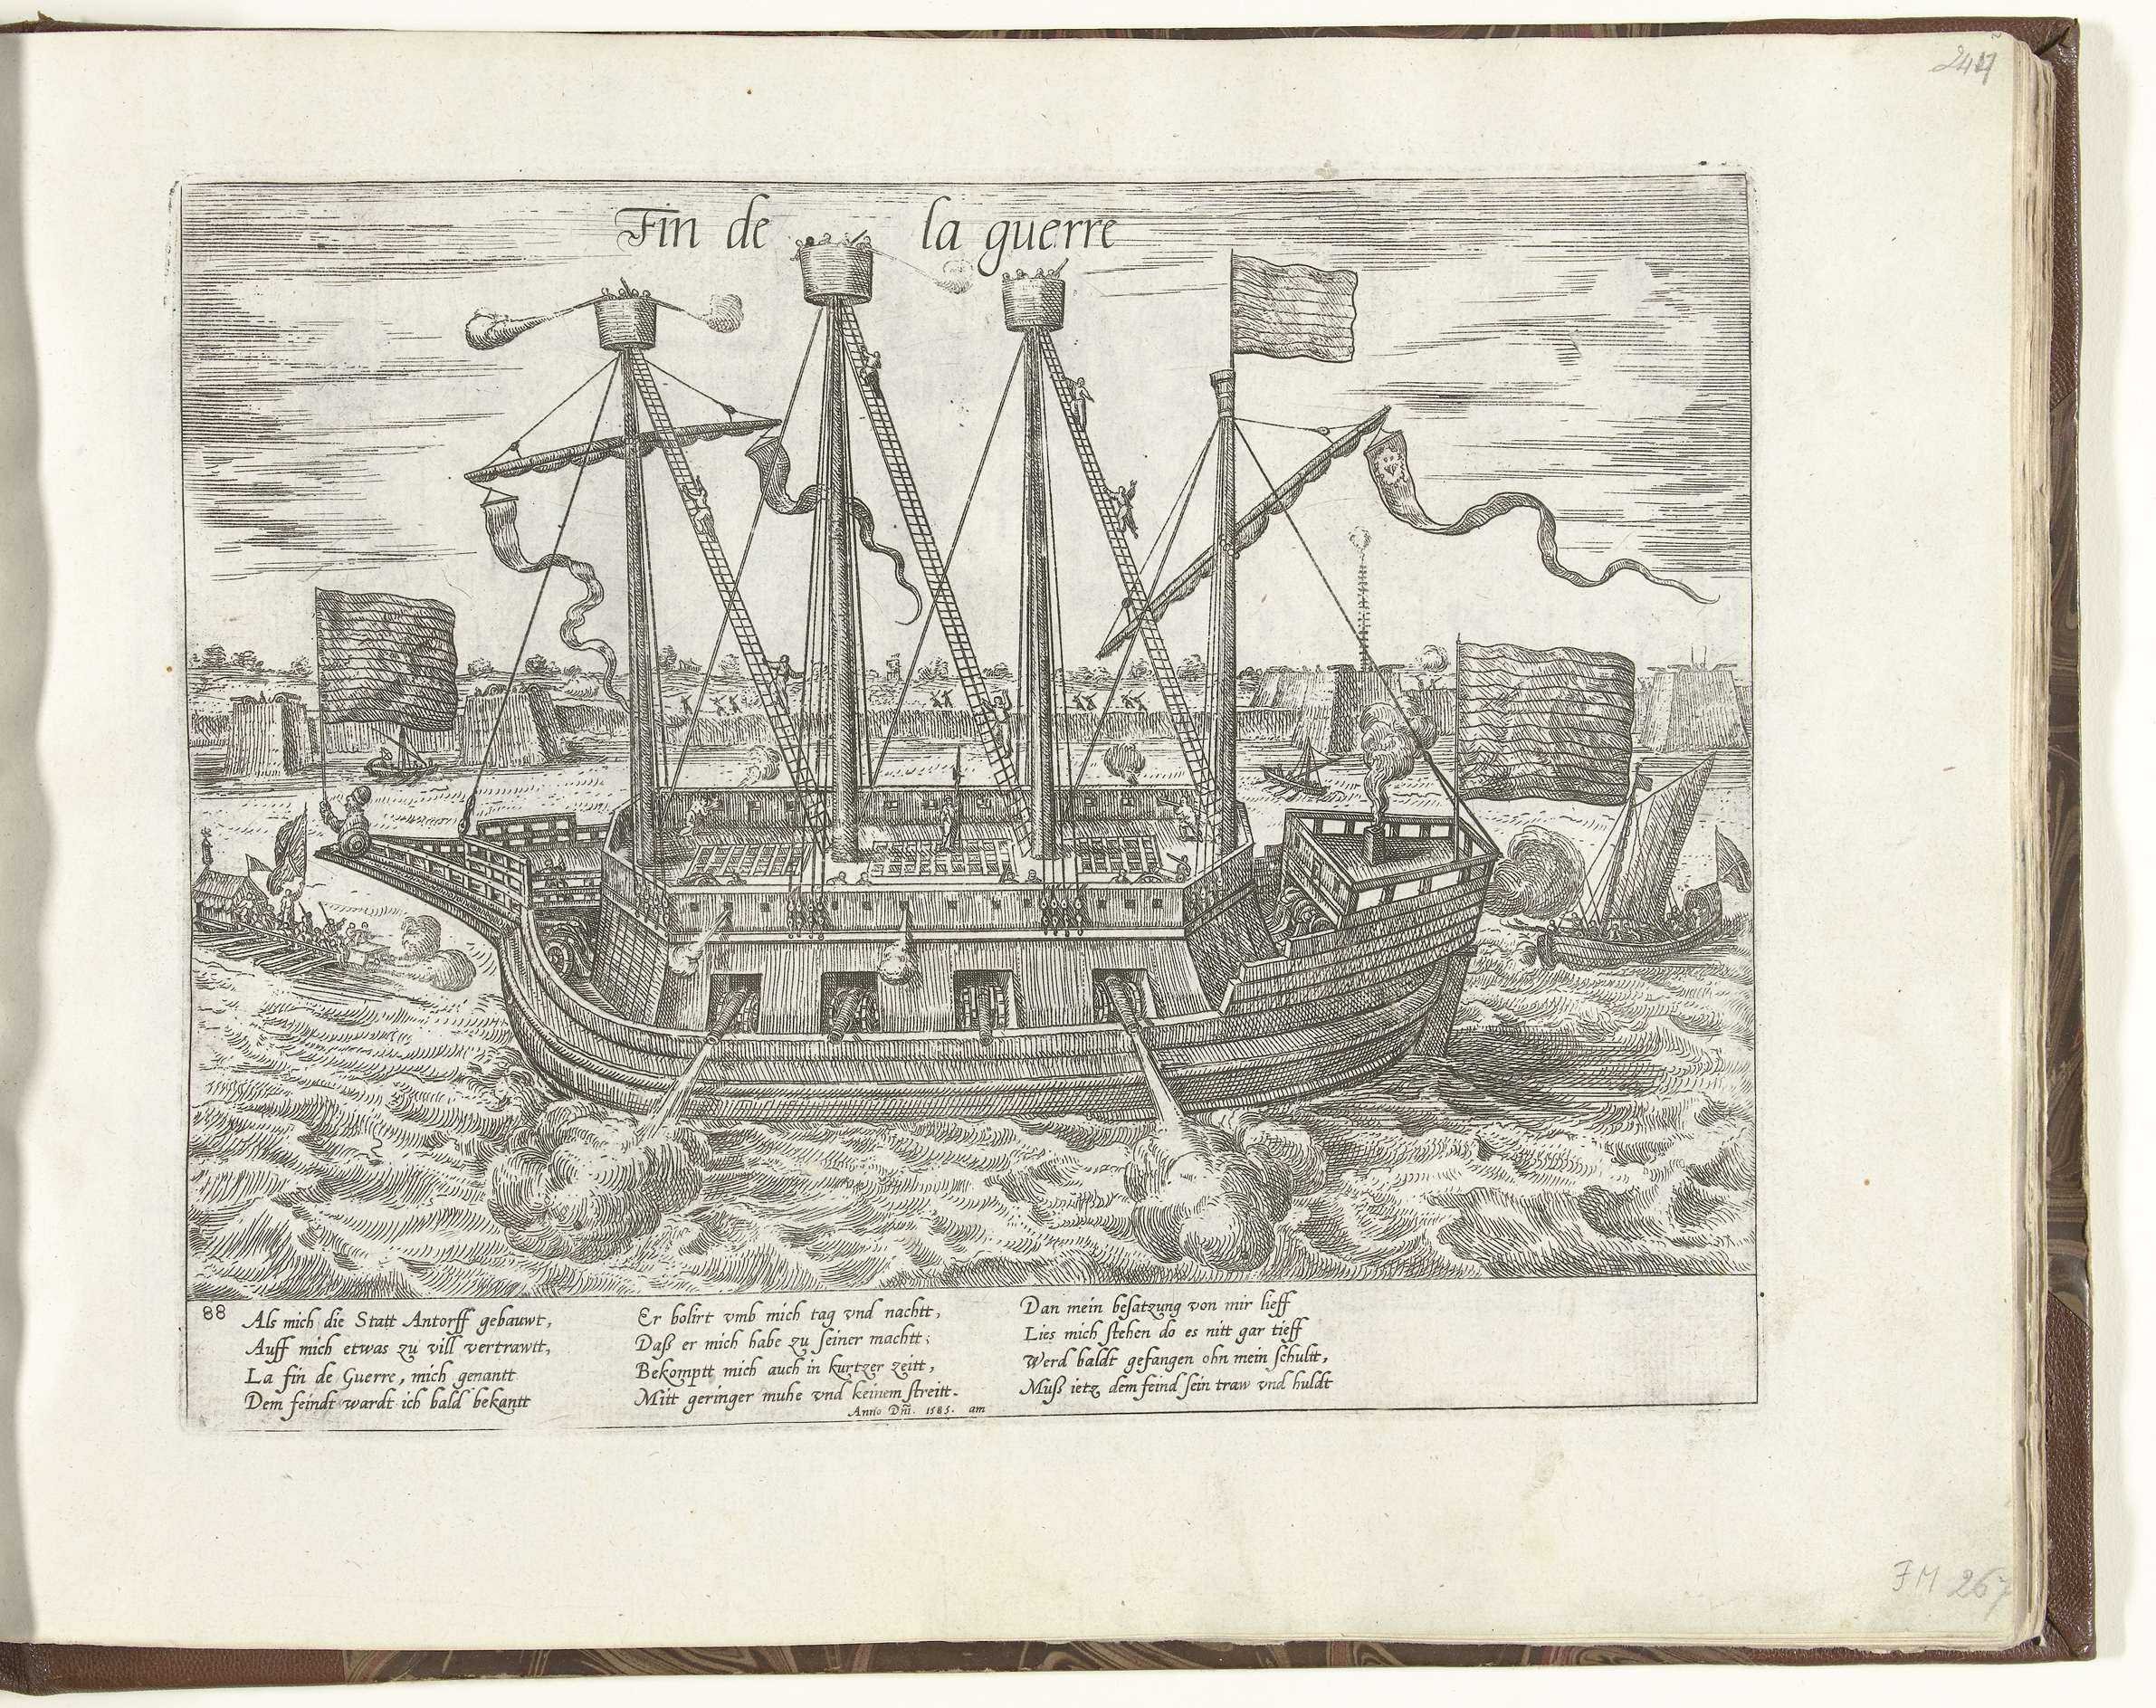 244
Fin de la guerre
88
Als mich die Statt Antorff gebauwt,
Auff mich etwas zu vill vertrawtt,
La fin de Guerre, mich genantt
Dem feindt wardt ich bald bekantt
Er bolirt vmb mich tag vnd nachtt,
Daß er mich habe zu seiner machtt;
Bekomptt mich auch in kurtzer zeitt,
Mitt geringer muhe vnd keinem streitt.
Dan mein besatzung von mir lieff
Lies mich stehen do es nitt gar tieff
Werd baldt gefangen ohn mein schultt,
Muß ietz dem feind sein traw vnd huldt
Anno Dñi. 1585. am
FM 267